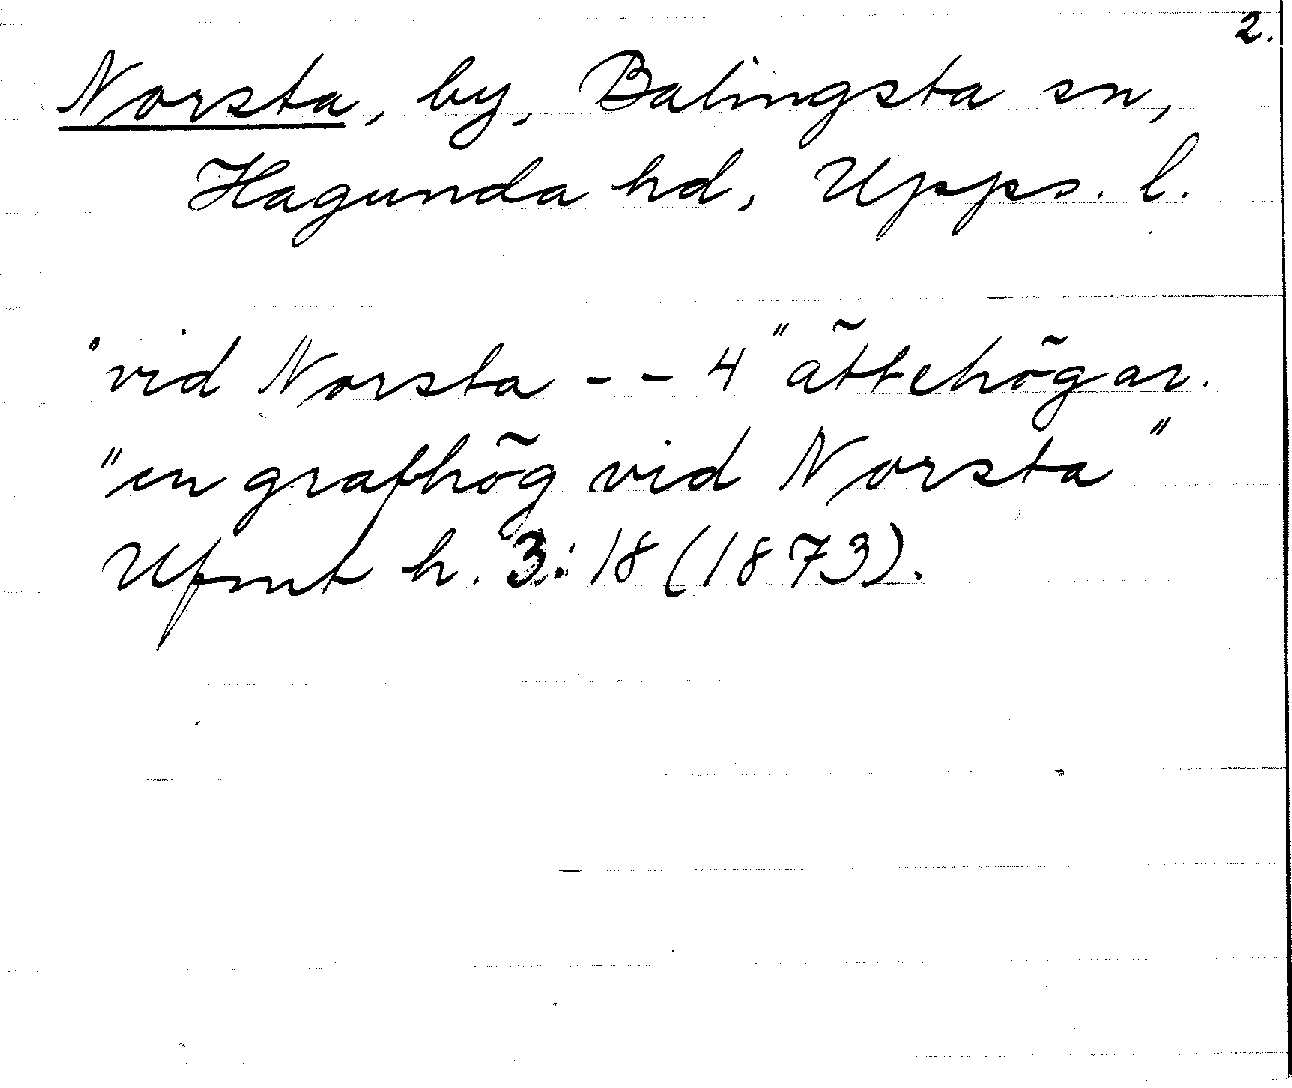 2.
Norsta, by, Balingsta sn,
Hagunda hd, Upps. l.
"vid Norsta - - 4" ättehögar.
"en grafhög vid Norsta"
Ufmt h. 3:18 (1873).